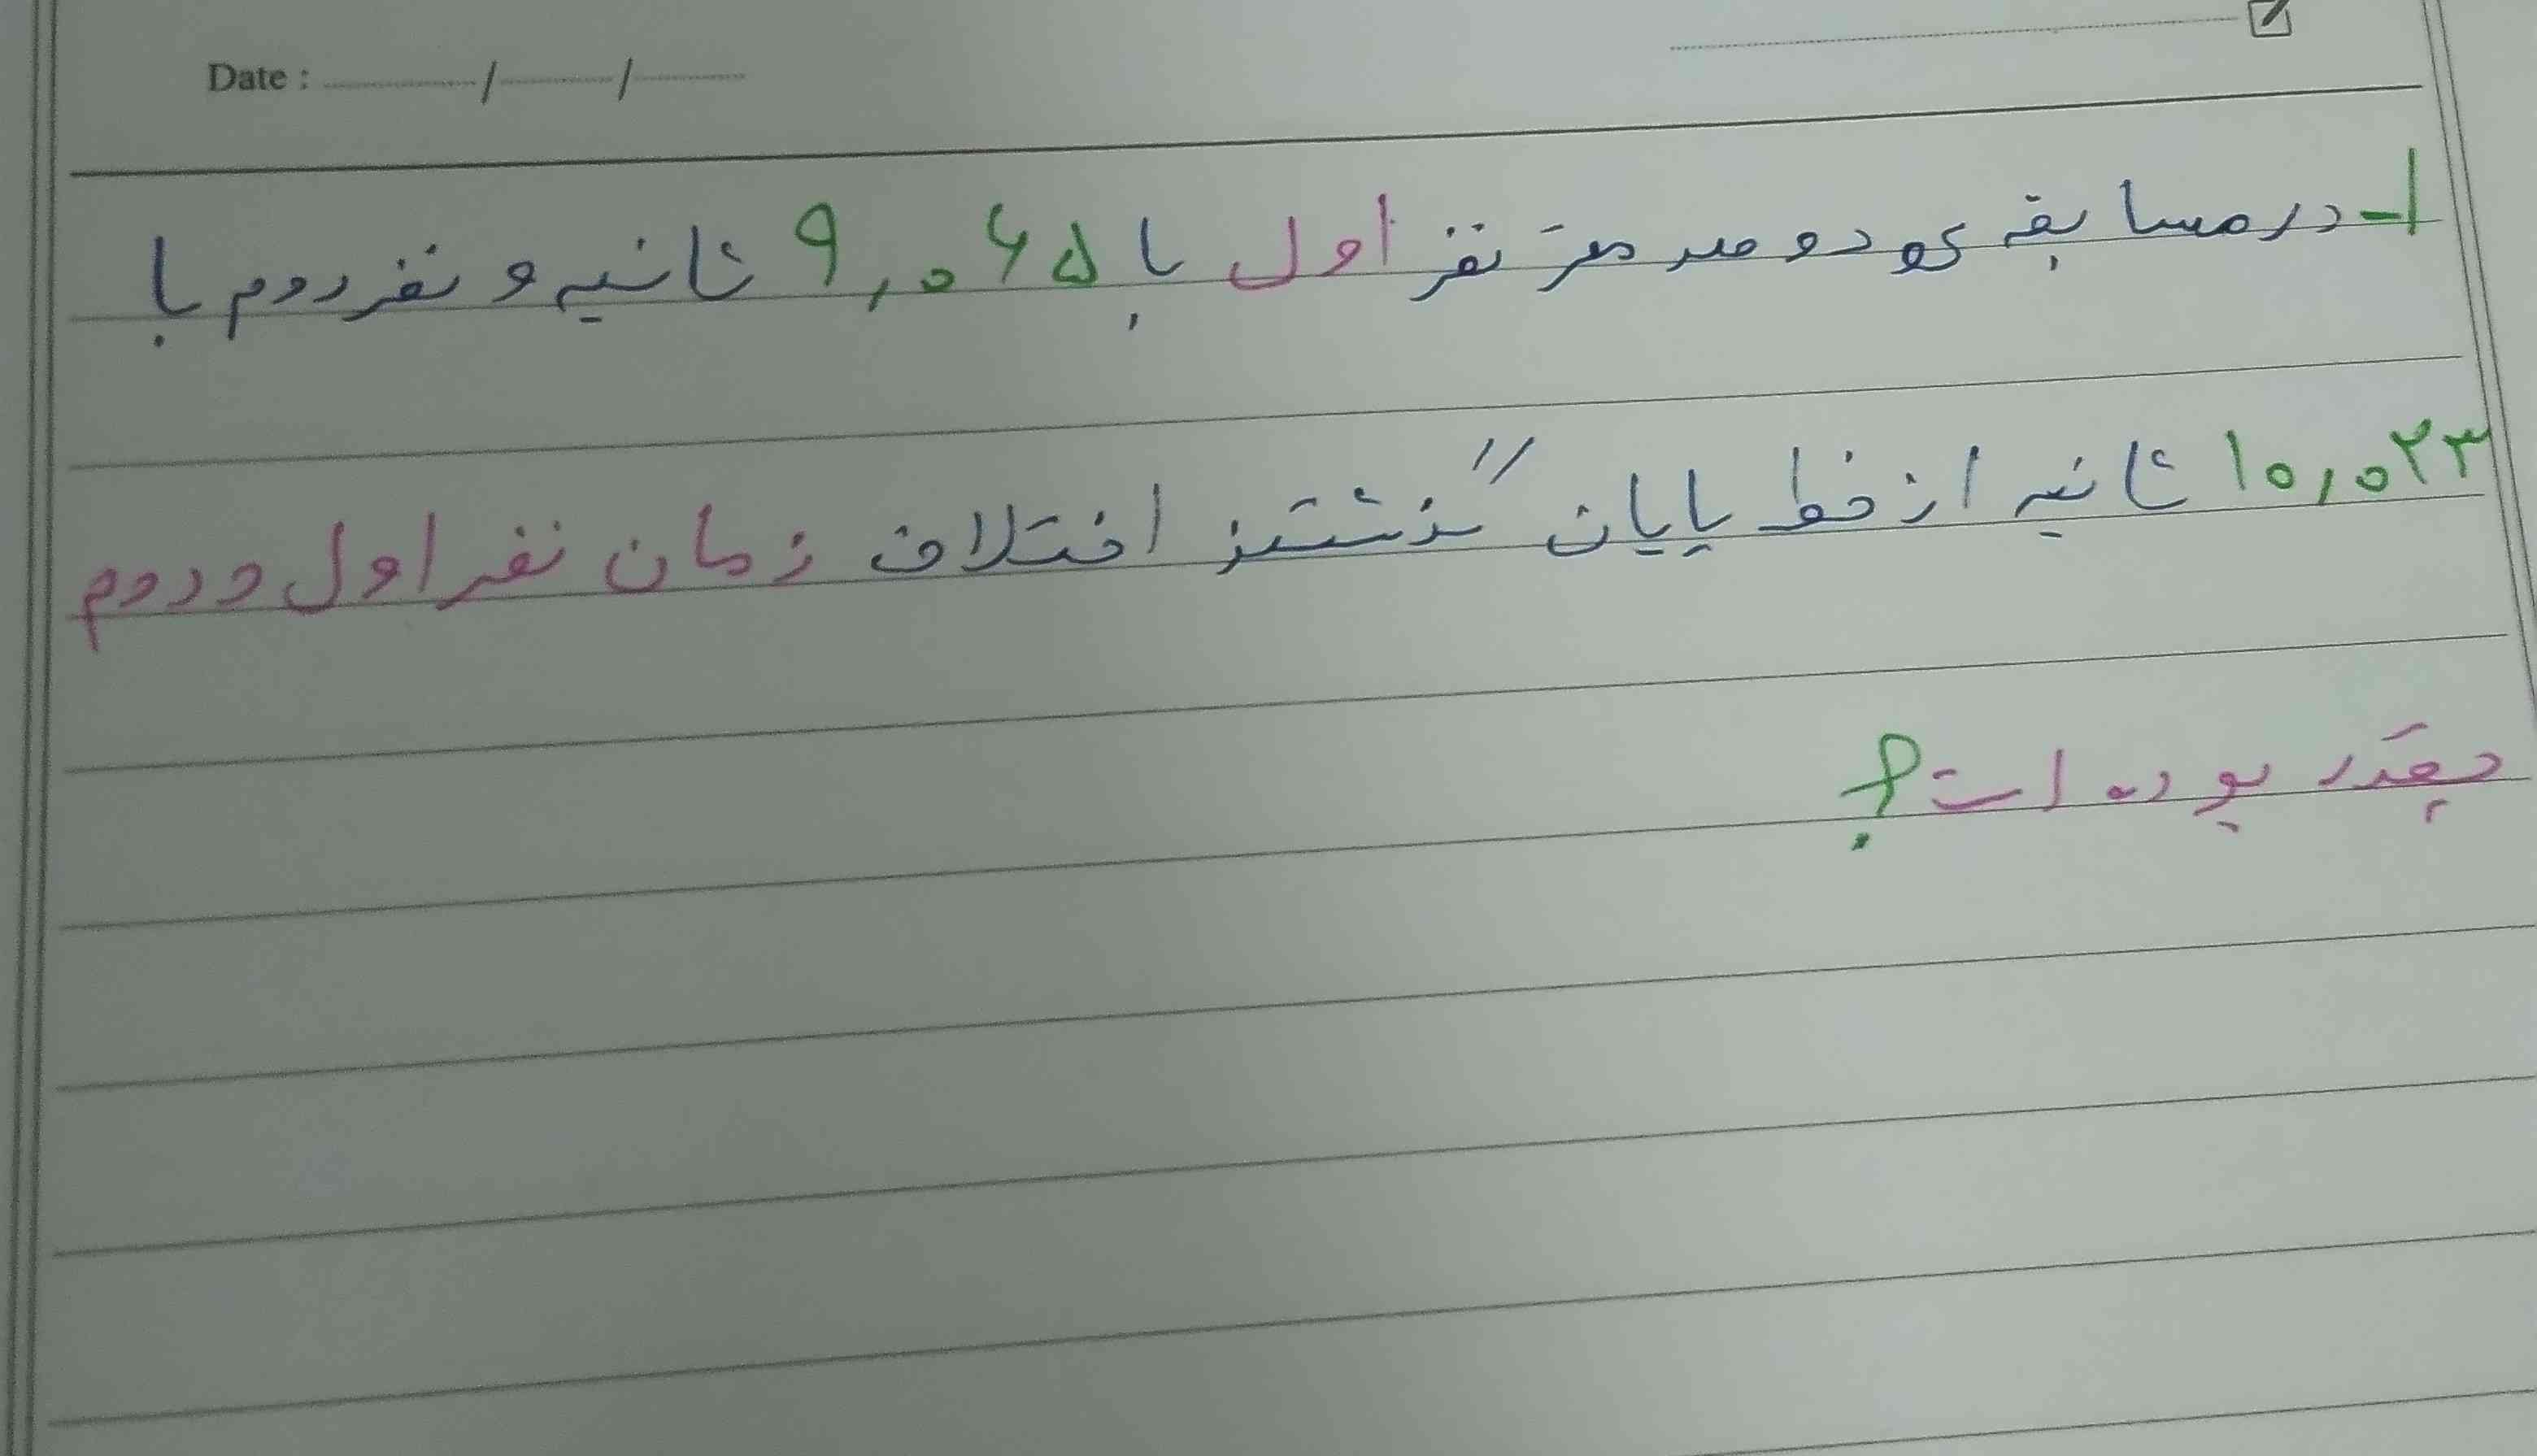 Date : ........../........../..........
۱- در مسابقه ی دو صد متر نفر اول با ۹٫۰۶۵ ثانیه و نفر دوم با
۱۰٫۰۲۳ ثانیه از خط پایان گذشتند اختلاف زمان نفر اول و دوم
چقدر بوده است؟